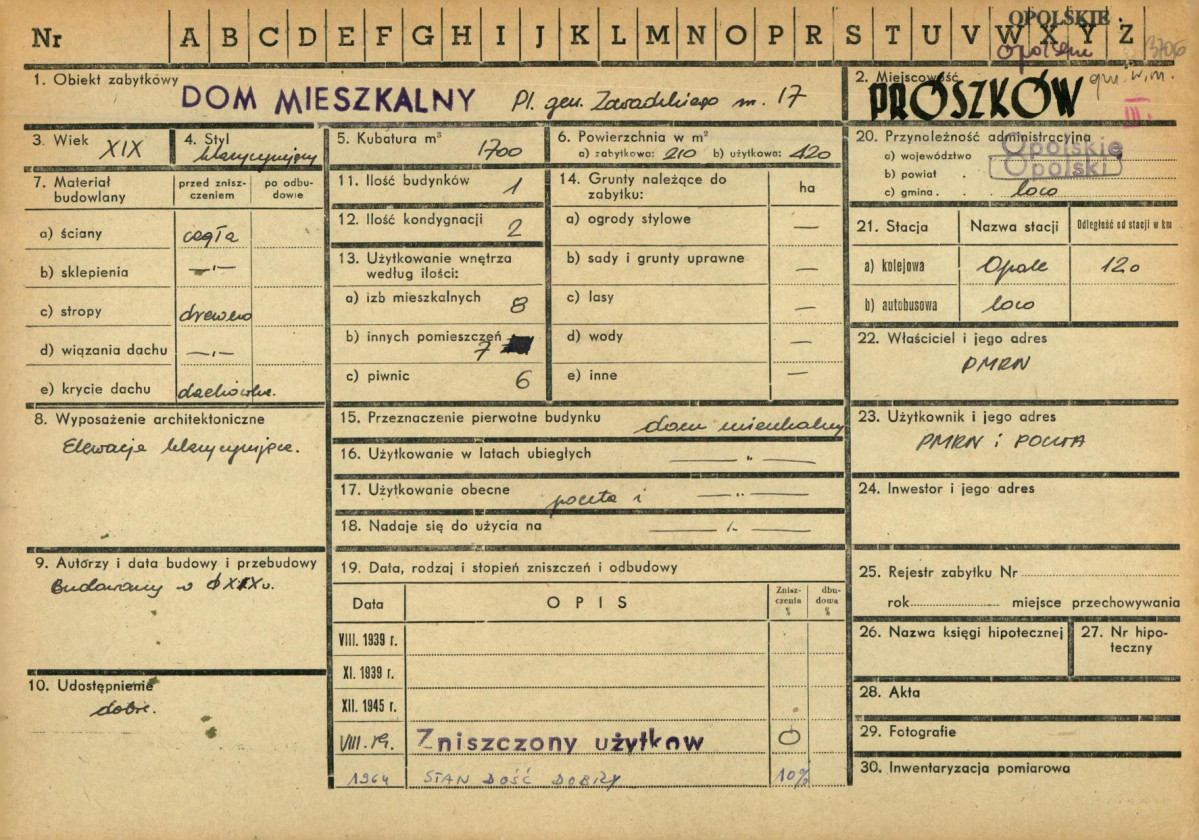 OPOLSKIE
Nr A B C D E F G H I J K L M N O P R S T U V W X Y Z
3706
1. Obiekt zabytkówy
DOM MIESZKALNY Pl. gen. Zawadzkiego nr. 17
2. Miejscowość
PRÓSZKÓW
gm. w. m.
III.
3. Wiek XIX
4. Styl klasycyzujący
5. Kubatura m³ 1700
6. Powierzchnia w m²
a) zabytkowa: 210 b) użytkowa: 420
20. Przynależność administracyjna
a) województwo Opolskie
b) powiat Opolski
c) gmina loco
7. Materiał budowlany
przed znisz-
czeniem
po odbu-
dowie
a) ściany cegła
b) sklepienia —„—
c) stropy drewno
d) wiązania dachu —„—
e) krycie dachu dachówka.
11. Ilość budynków 1
12. Ilość kondygnacji 2
13. Użytkowanie wnętrza
według ilości:
a) izb mieszkalnych 8
b) innych pomieszczeń 7
c) piwnic 6
14. Grunty należące do
zabytku:
ha
a) ogrody stylowe —
b) sady i grunty uprawne —
c) lasy —
d) wody —
e) inne —
21. Stacja Nazwa stacji Odległość od stacji w km
a) kolejowa Opole 12o
b) autobusowa loco
22. Właściciel i jego adres
PMRN
8. Wyposażenie architektoniczne
Elewacje klasycyzujące.
15. Przeznaczenie pierwotne budynku dom mieszkalny
16. Użytkowanie w latach ubiegłych —„—
17. Użytkowanie obecne poczta i —„—
18. Nadaje się do użycia na —„—
23. Użytkownik i jego adres
PMRN i POCZTA
24. Inwestor i jego adres
9. Autorzy i data budowy i przebudowy
Budowany w XIX w.
10. Udostępnienie
dobre.
19. Data, rodzaj i stopień zniszczeń i odbudowy
Data OPIS
Znisz-
czenia
%
dbu-
dowa
%
VIII. 1939 r.
XI. 1939 r.
XII. 1945 r.
VIII. 59. Zniszczony użytkow O
1964 STAN DOŚĆ DOBRY 10%
25. Rejestr zabytku Nr
rok miejsce przechowywania
26. Nazwa księgi hipotecznej
27. Nr hipo-
teczny
28. Akta
29. Fotografie
30. Inwentaryzacja pomiarowa